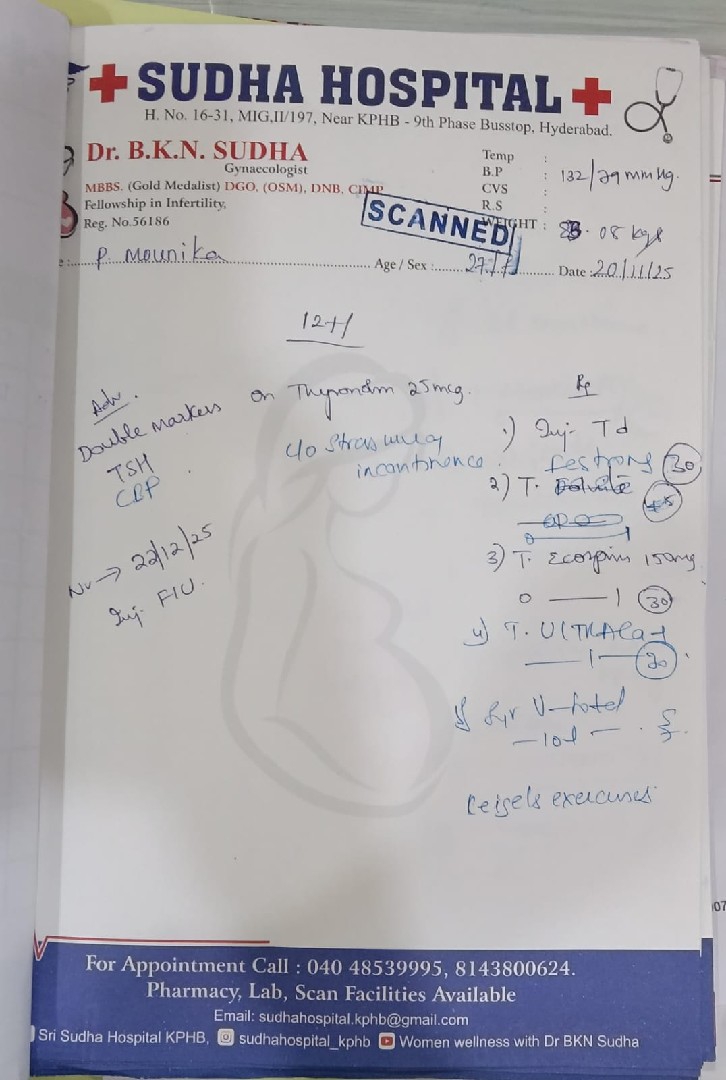 SUDHA HOSPITAL
H. No. 16-31, MIG,II/197, Near KPHB - 9th Phase Busstop, Hyderabad.
Dr. B.K.N. SUDHA
Gynaecologist
MBBS, (Gold Medalist) DGO, (OSM), DNB, CIMP
Fellowship in Infertility,
Reg. No.56186
Temp :
B.P : 132/79 mmHg.
CVS :
R.S :
WEIGHT : 08 kgs
SCANNED
P. Mounika Age / Sex : 27/F Date : 20/11/25
12+1
Adv.
Double markers
TSH
CBP
NV → 22/12/25
Inj. FIU.
on Thyronom 25mcg.
c/o Stress
incontinence
Rx
1) Inj. Td
2) T. 30
45
3) T. Ecosprin 150mg
0 — 1 30
4) T. ULTRACal
— 1 — 30
5) Syr V-total
keigels exercises
For Appointment Call : 040 48539995, 8143800624.
Pharmacy, Lab, Scan Facilities Available
Email: sudhahospital.kphb@gmail.com
Sri Sudha Hospital KPHB, sudhahospital_kphb Women wellness with Dr BKN Sudha